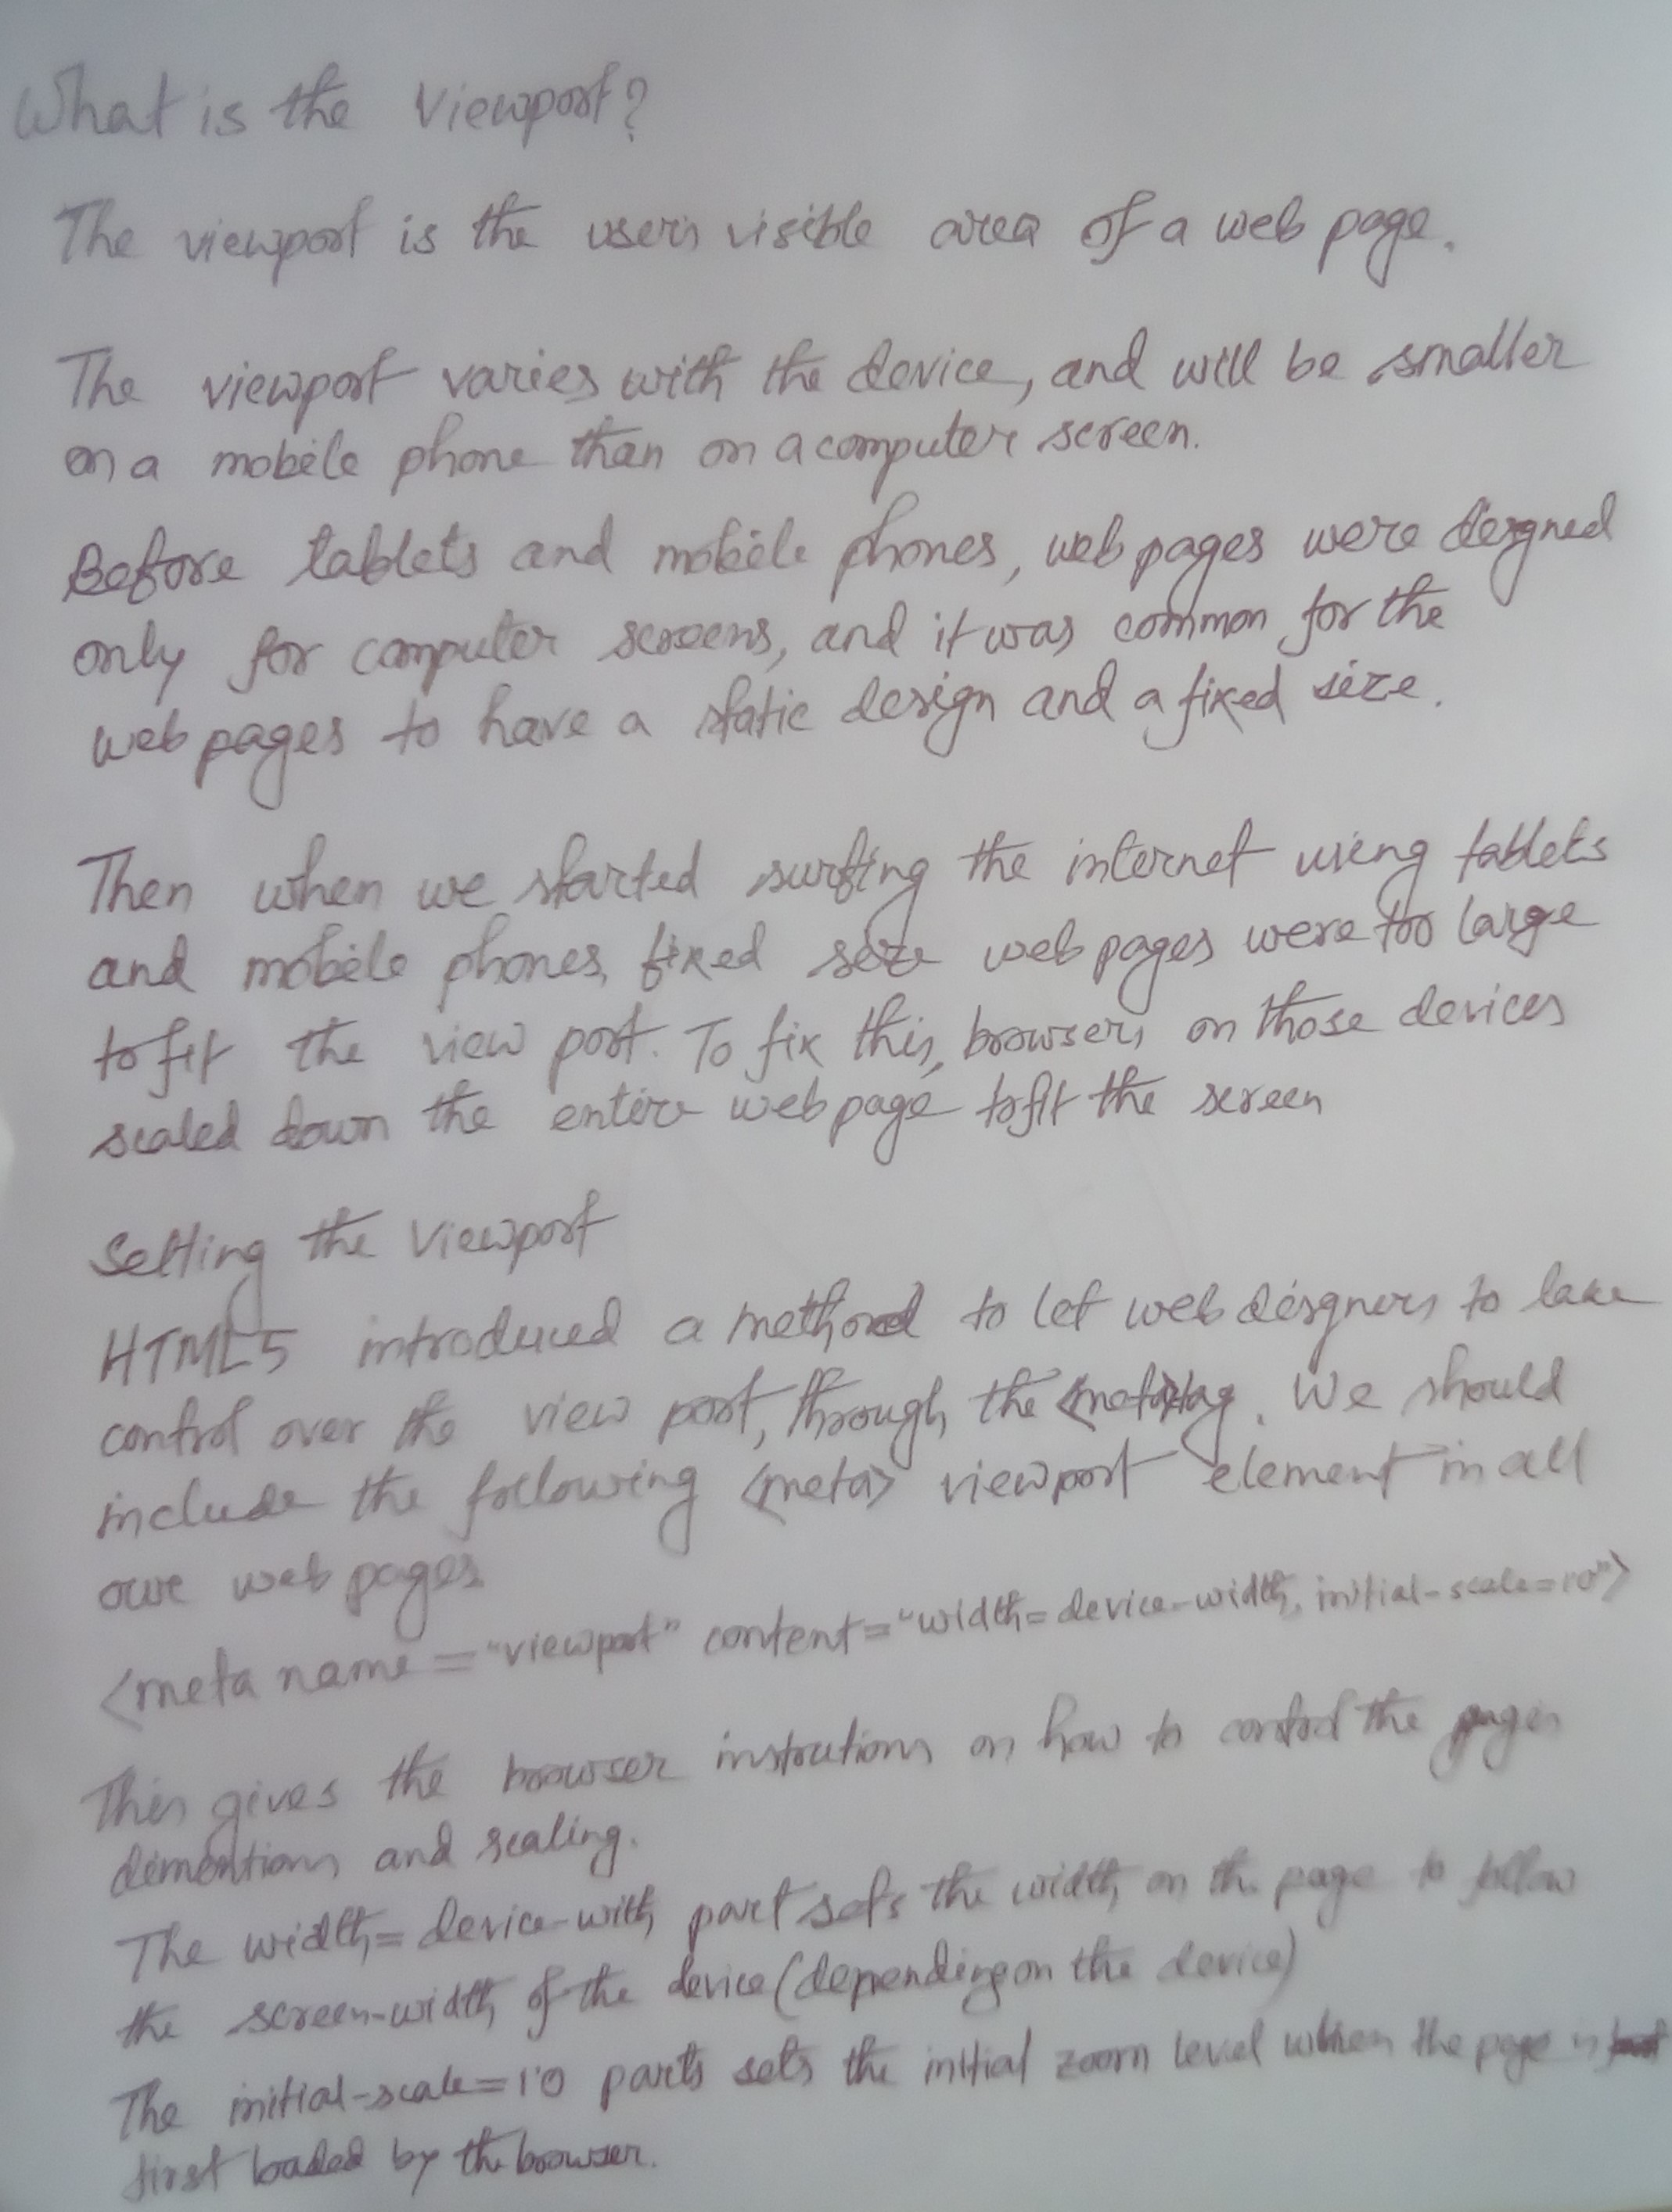 What is the Viewport?
The viewport is the users visible area of a web page.
The viewport varies with the device, and will be smaller
on a mobile phone than on a computer screen.
Before tablets and mobile phones, web pages were designed
only for computer screens, and it was common for the
web pages to have a static design and a fixed size.
Then when we started surfing the internet using tablets
and mobile phones, fixed size web pages were too large
to fit the view port. To fix this, browsers on those devices
scaled down the entire web page to fit the screen
Setting the Viewport
HTML5 introduced a method to let web designers to take
control over the view port, through the <meta> tag. We should
include the following <meta> viewport element in all
our web pages
<meta name="viewport" content="width=device-width, initial-scale=1.0">
This gives the browser instrutions on how to control the pages
dimentions and scaling.
The width=device-with part sets the width on the page to follow
the screen-width of the device (depending on the device)
The initial-scale=1.0 parts sets the initial zoom level when the page is
first loaded by the browser.